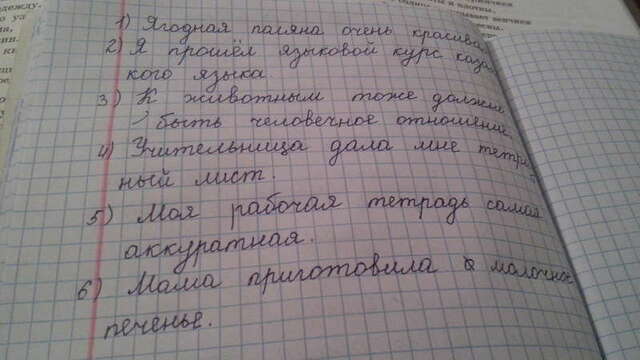 1) Ягодная поляна очень красива
2) Я прошёл языковой курс каза
кого языка
3) К животным тоже должн
быть человечное отношение
4) Учительница дала мне тетрад
ный лист.
5) Моя рабочая тетрадь самая
аккуратная.
6) Мама приготовила молочное
печенье.